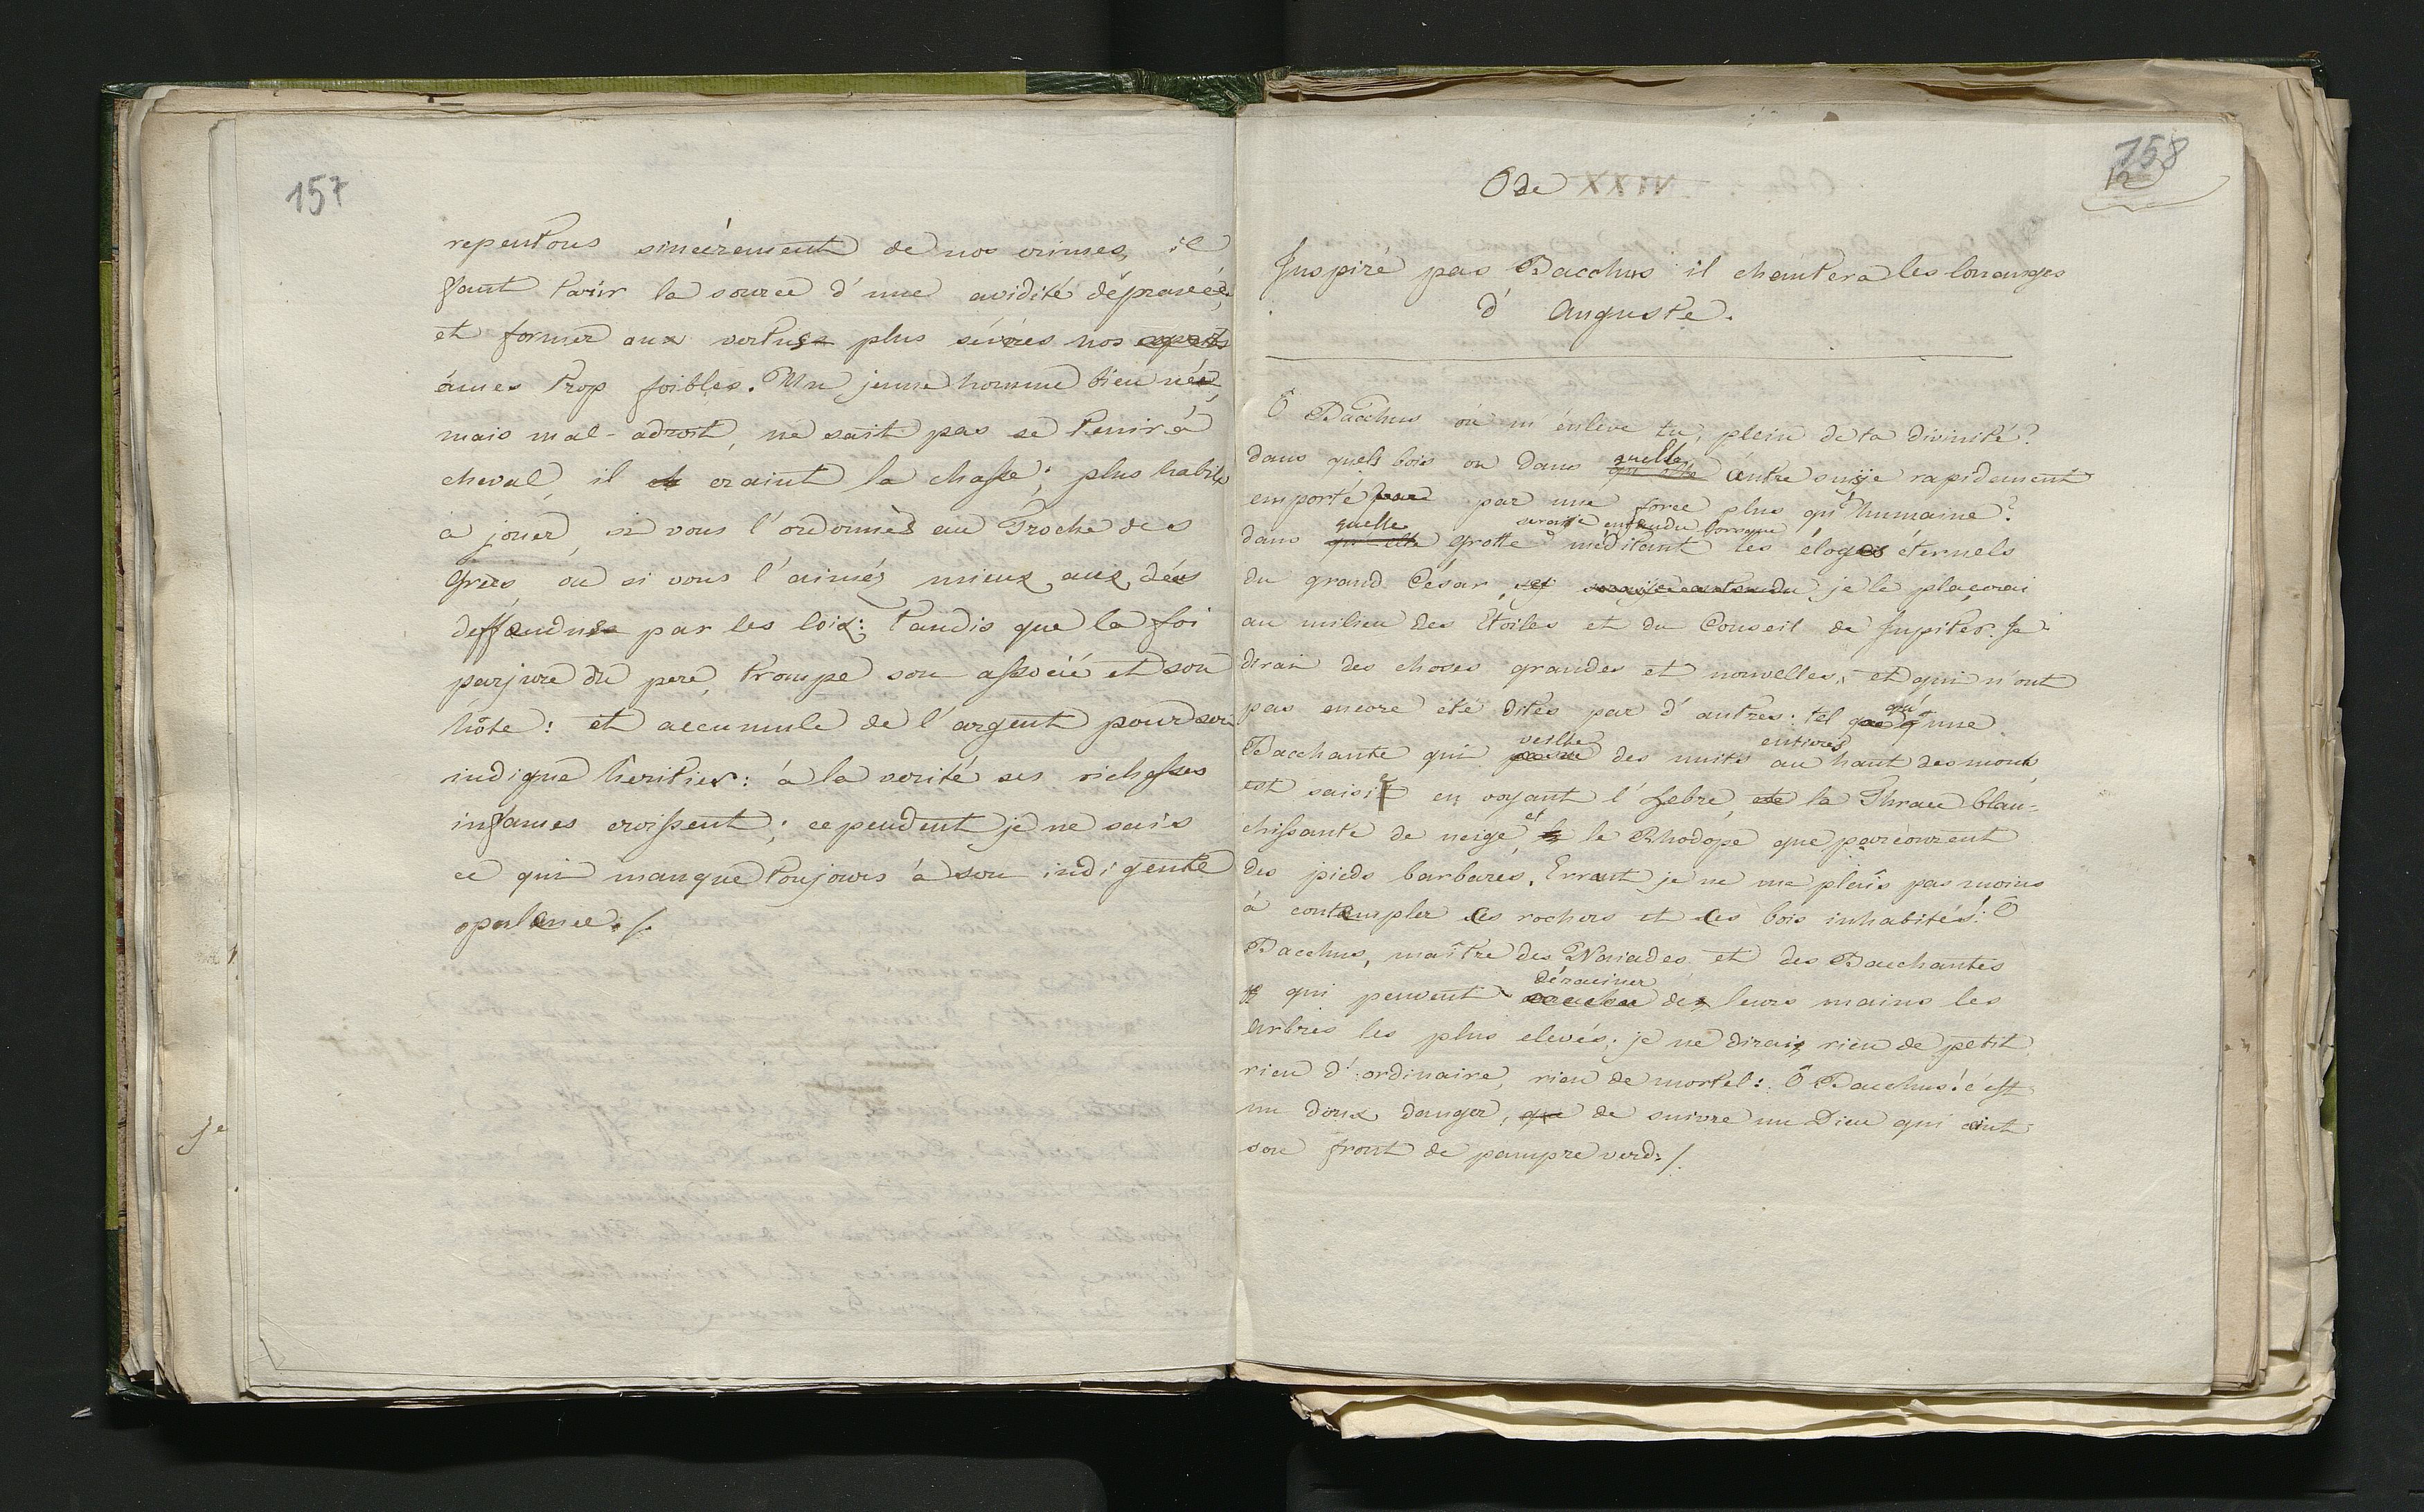 157
repentons sincérement de nos crimes, il
faut tarir la source d'une avidité dépravée,
et former aux vertus plus sévères nos esprits
âmes trop foibles. Un jeune homme bien né,
mais mal-adroit, ne sait pas se tenir à
cheval, il craint la chasse; plus habile
à jouer, si vous l'ordonnés au Troche des
Grecs, ou si vous l'aimés mieux, aux dés
deffendus par les loix: tandis que la foi
parjure du pere, trompe son associé et son
hôte: et accumule de l'argent pour son
indigne heritier: à la verité ses richesses
infames croissent; cependent je ne sais
ce qui manque toujours à son indigente
opulence./.
158
12
Ode
Inspiré par Bacchus il chantera les louanges
d'Auguste.
Ô Bacchus où m'énlève tu, plein de ta divinité?
dans quels bois ou dans qu'elle quelle antre suisje rapidement
emporté par une force plus qu'humaine?
dans qu'elle quelle grotte seraije entendu lorsque méditant les éloges éternels
du grand César, et seraije entendu je le placerai
au milieu des Etoiles et du Conseil de Jupiter. Je
dirai des choses grandes et nouvelles, et qui n'ont
pas encore été dites par d'autres: tel qu'une
Bacchante qui passe veille des nuits entieres au haut des monts,
est saisit en voyant l'hebre, la Thrace blan-
chissante de neige, et le Rhodope que parcourent
des pieds barbares. Errant je ne me plais pas moins
à contempler les rochers et les bois inhabités! Ô
Bacchus, maître des Naiades, et des Bacchantes
qui peuvent arracher déraciner de leurs mains les
arbres les plus elevés; je ne dirai rien de petit
rien d'ordinaire, rien de mortel: Ô Bacchus! c'est
un doux danger, que de suivre un Dieu qui ceint
son front de pampre verd./.
Je